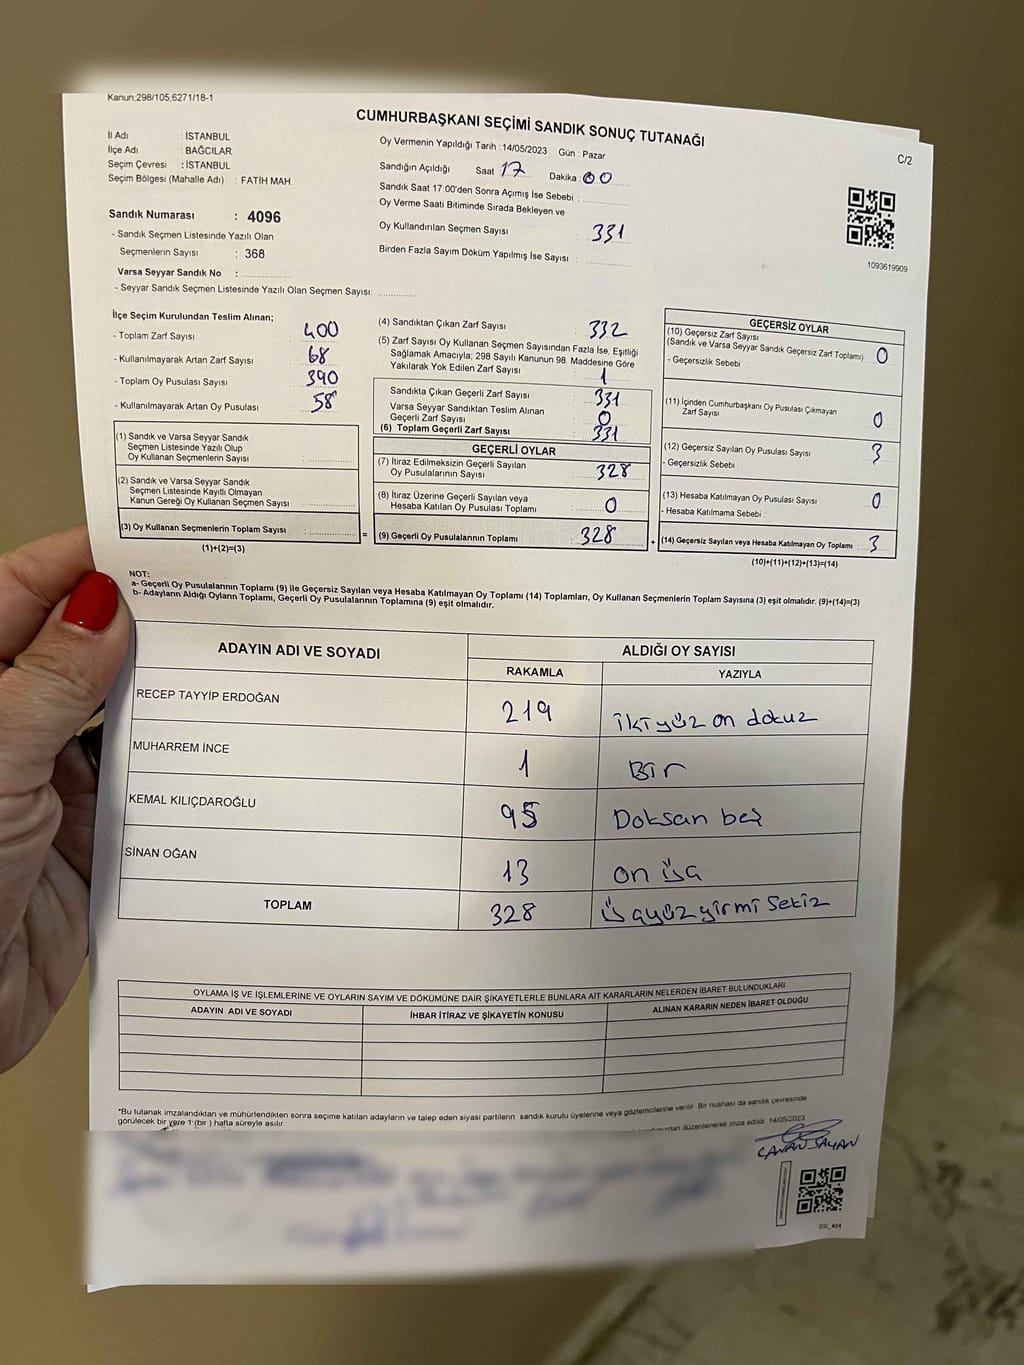 Kanun;298/105,6271/18-1
CUMHURBAŞKANI SEÇİMİ SANDIK SONUÇ TUTANAĞI
C/2
İl Adı : İSTANBUL
İlçe Adı : BAĞCILAR
Seçim Çevresi : İSTANBUL
Seçim Bölgesi (Mahalle Adı) : FATİH MAH.
Oy Vermenin Yapıldığı Tarih : 14/05/2023 Gün : Pazar
Sandığın Açıldığı Saat 17 Dakika : 00
Sandık Saat 17:00'den Sonra Açımış İse Sebebi :
Oy Verme Saati Bitiminde Sırada Bekleyen ve
Oy Kullandırılan Seçmen Sayısı : 331
Birden Fazla Sayım Döküm Yapılmış İse Sayısı :
1093619909
Sandık Numarası : 4096
- Sandık Seçmen Listesinde Yazılı Olan
Seçmenlerin Sayısı : 368
Varsa Seyyar Sandık No :
- Seyyar Sandık Seçmen Listesinde Yazılı Olan Seçmen Sayısı:
İlçe Seçim Kurulundan Teslim Alınan;
- Toplam Zarf Sayısı : 400
- Kullanılmayarak Artan Zarf Sayısı : 68
- Toplam Oy Pusulası Sayısı : 390
- Kullanılmayarak Artan Oy Pusulası : 58
(1) Sandık ve Varsa Seyyar Sandık
Seçmen Listesinde Yazılı Olup
Oy Kullanan Seçmenlerin Sayısı :
(2) Sandık ve Varsa Seyyar Sandık
Seçmen Listesinde Kayıtlı Olmayan
Kanun Gereği Oy Kullanan Seçmen Sayısı :
(3) Oy Kullanan Seçmenlerin Toplam Sayısı :
(1)+(2)=(3)
=
(4) Sandıktan Çıkan Zarf Sayısı : 332
(5) Zarf Sayısı Oy Kullanan Seçmen Sayısından Fazla İse, Eşitliği
Sağlamak Amacıyla; 298 Sayılı Kanunun 98. Maddesine Göre
Yakılarak Yok Edilen Zarf Sayısı : 1
Sandıkta Çıkan Geçerli Zarf Sayısı : 331
Varsa Seyyar Sandıktan Teslim Alınan
Geçerli Zarf Sayısı : 0
(6) Toplam Geçerli Zarf Sayısı : 331
GEÇERLİ OYLAR
(7) İtiraz Edilmeksizin Geçerli Sayılan
Oy Pusulalarının Sayısı : 328
(8) İtiraz Üzerine Geçerli Sayılan veya
Hesaba Katılan Oy Pusulası Toplamı : 0
(9) Geçerli Oy Pusulalarının Toplamı : 328
+
GEÇERSİZ OYLAR
(10) Geçersiz Zarf Sayısı
(Sandık ve Varsa Seyyar Sandık Geçersiz Zarf Toplamı) : 0
- Geçersizlik Sebebi :
(11) İçinden Cumhurbaşkanı Oy Pusulası Çıkmayan
Zarf Sayısı : 0
(12) Geçersiz Sayılan Oy Pusulası Sayısı : 3
- Geçersizlik Sebebi :
(13) Hesaba Katılmayan Oy Pusulası Sayısı : 0
- Hesaba Katılmama Sebebi :
(14) Geçersiz Sayılan veya Hesaba Katılmayan Oy Toplamı : 3
(10)+(11)+(12)+(13)=(14)
NOT:
a- Geçerli Oy Pusulalarının Toplamı (9) ile Geçersiz Sayılan veya Hesaba Katılmayan Oy Toplamı (14) Toplamları, Oy Kullanan Seçmenlerin Toplam Sayısına (3) eşit olmalıdır. (9)+(14)=(3)
b- Adayların Aldığı Oyların Toplamı, Geçerli Oy Pusulalarının Toplamına (9) eşit olmalıdır.
ADAYIN ADI VE SOYADI
ALDIĞI OY SAYISI
RAKAMLA YAZIYLA
RECEP TAYYİP ERDOĞAN 219 ikiyüz on dokuz
MUHARREM İNCE 1 Bir
KEMAL KILIÇDAROĞLU 95 Doksan beş
SİNAN OĞAN 13 on üç
TOPLAM 328 üçyüz yirmi sekiz
OYLAMA İŞ VE İŞLEMLERİNE VE OYLARIN SAYIM VE DÖKÜMÜNE DAİR ŞİKAYETLERLE BUNLARA AİT KARARLARIN NELERDEN İBARET BULUNDUKLARI
ADAYIN ADI VE SOYADI
İHBAR İTİRAZ VE ŞİKAYETİN KONUSU
ALINAN KARARIN NEDEN İBARET OLDUĞU
*Bu tutanak imzalandıktan ve mühürlendikten sonra seçime katılan adayların ve talep eden siyasi partilerin sandık kurulu üyelerine veya gözlemcilerine verilir. Bir nushası da sandık çevresinde
görülecek bir yere 1 (bir ) hafta süreyle asılır.
düzenlenerek imza edildi. 14/05/2023
CANAN SAYAN